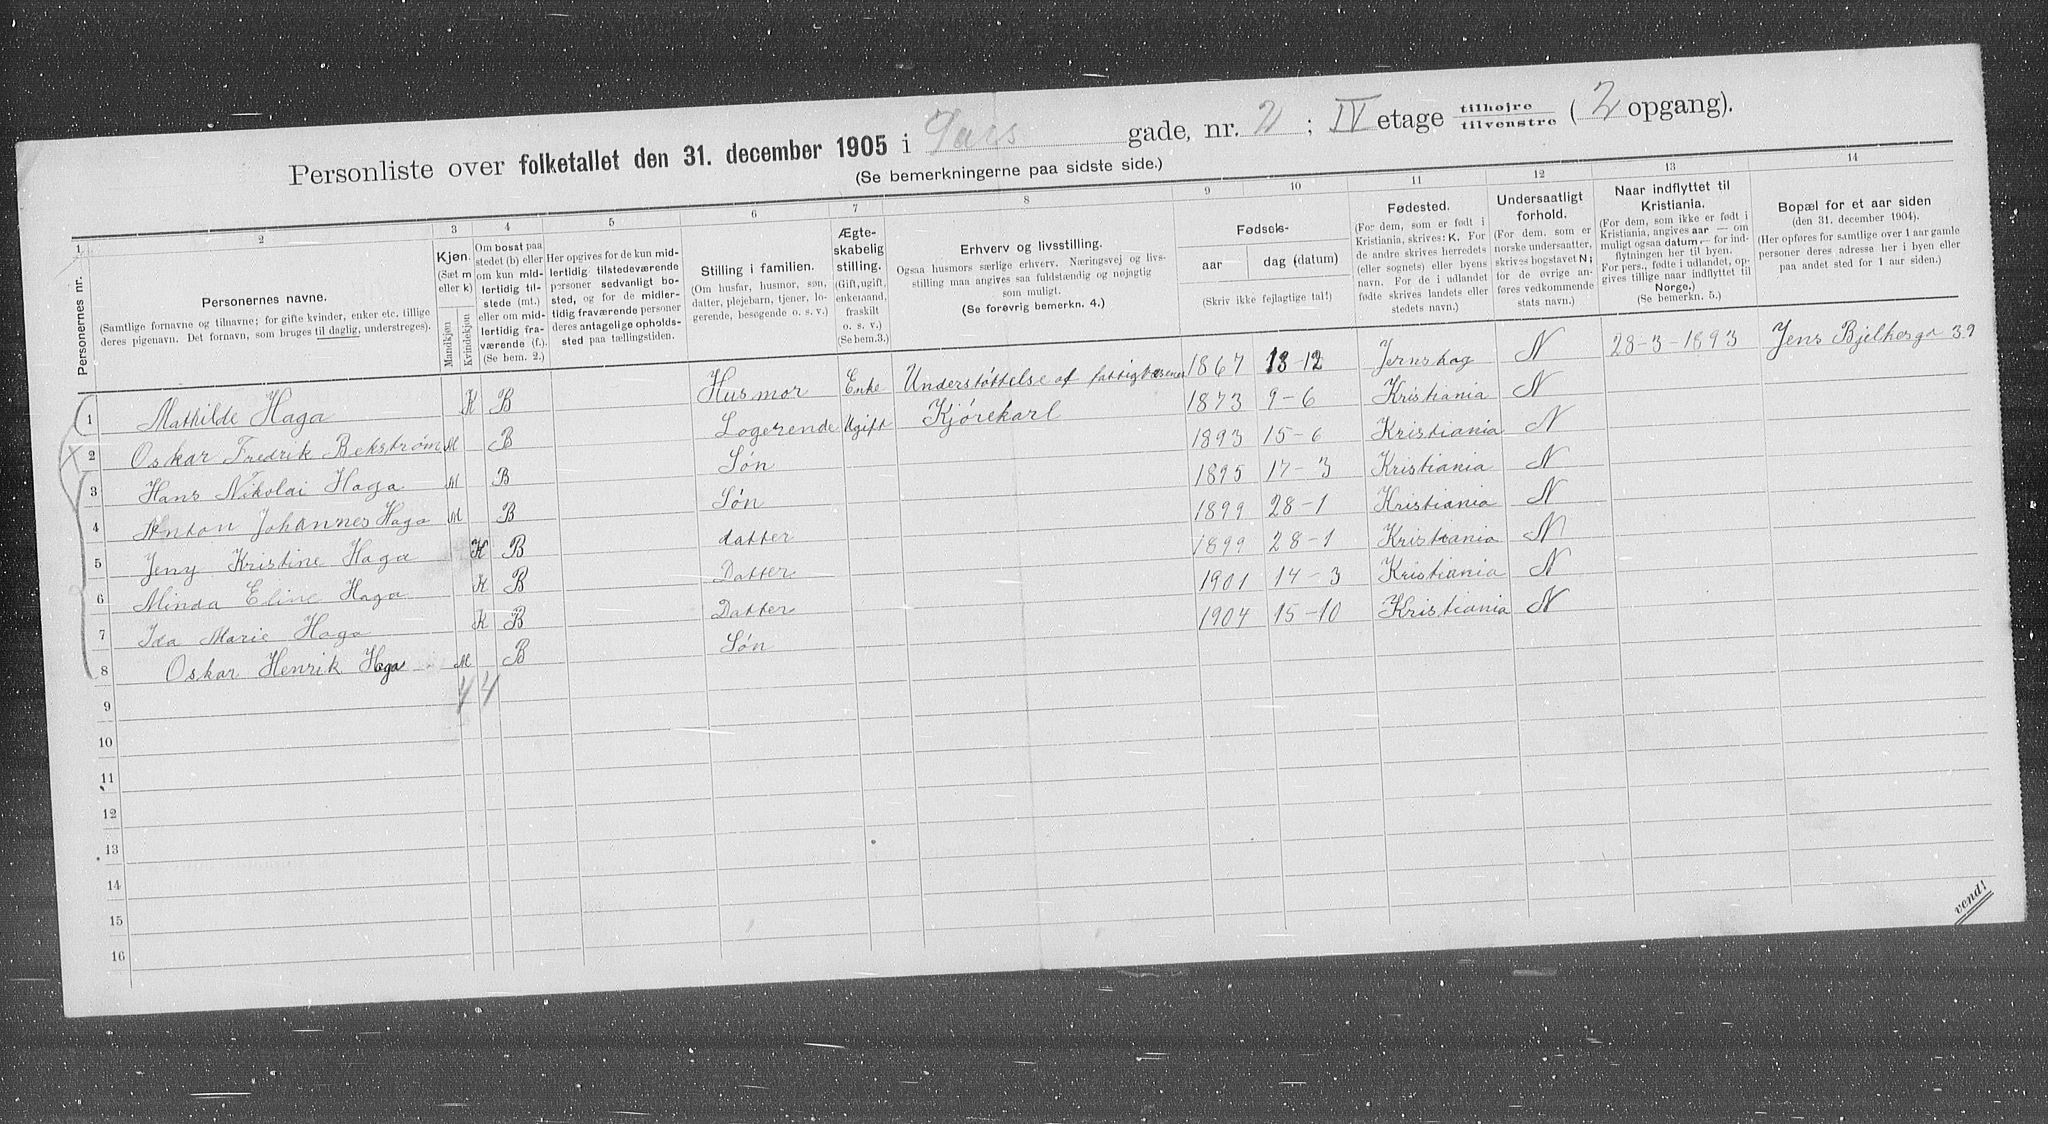 Personliste over folketallet den 31. december 1905 i gade, nr. 2 ; IV etage tilhøjre tilvenstre ( 2 opgang).
(Se bemerkningerne paa sidste side.)
1 2 3 4 5 6 7 8 9 10 11 12 13 14
Personernes nr.
Personernes navne.
(Samtlige fornavne og tilnavne; for gifte kvinder, enker etc. tillige
deres pigenavn. Det fornavn, som bruges til daglig, understreges).
Kjøn.
(Sæt m
eller k)
Mandkjøn
Kvindekjøn
Om bosat paa
stedet (b) eller
om kun mid-
lertidig til-
stede (mt.)
eller om mid-
lertidig fra-
værende (f.).
(Se bem. 2.)
Her opgives for de kun mid-
lertidig tilstedeværende
personer sedvanligt bo-
sted, og for de midler-
tidig fraværende personer
deres antagelige opholds-
sted paa tællingstiden.
Stilling i familien.
(Om husfar, husmor, søn,
datter, plejebarn, tjener, lo-
gerende, besøgende o. s. v.)
Ægte-
skabelig
stilling.
(Gift, ugift,
enkemand,
fraskilt
o. s. v.)
(Se bem.3.)
Erhverv og livsstilling.
Ogsaa husmors særlige erhverv. Næringsvej og livs-
stilling maa angives saa fuldstændig og nøjagtig
som muligt.
(Se forøvrig bemerkn. 4.)
Fødsels-
aar dag (datum)
(Skriv ikke fejlagtige tal!)
Fødested.
(For dem, som er født i
Kristiania, skrives: K. For
de andre skrives herredets
(eller sognets) eller byens
navn. For de i udlandet
fødte skrives landets eller
stedets navn.)
Undersaatligt
forhold.
(For dem, som er
norske undersaatter,
skrives bogstavet N;
for de øvrige an-
føres vedkommende
stats navn.)
Naar indflyttet til
Kristiania.
(For dem, som ikke er født i
Kristiania, angives aar — om
muligt ogsaa datum — for ind-
flytningen her til byen.
For pers., fødte i udlandet, op-
gives tillige naar indflyttet til
Norge.)
(Se bemerkn. 5.)
Bopæl for et aar siden
(den 31. december 1904).
(Her opføres for samtlige over 1 aar gamle
personer deres adresse her i byen eller
paa andet sted for 1 aar siden.)
1 Mathilde Haga K B Husmor Enke Understøttelse af fattigvæsenet 1867 13-12 Jernskag N 28-3-1893 Jens Bjelkesga 32
2 Oskar Fredrik Bekstrøm M B Logerende Ugift Kjørekarl 1873 9-6 Kristiania N
3 Hans Nikolai Haga M B Søn 1893 15-6 Kristiania N
4 Anton Johannes Haga M B Søn 1895 17-3 Kristiania N
5 Jeny Kristine Haga K B datter 1899 28-1 Kristiania N
6 Minda Eline Haga K B Datter 1899 28-1 Kristiania N
7 Ida Marie Haga K B Datter 1901 14-3 Kristiania N
8 Oskar Henrik Haga M B Søn 1904 15-10 Kristiania N
9 4 4
10
11
12
13
14
15
16
vend!